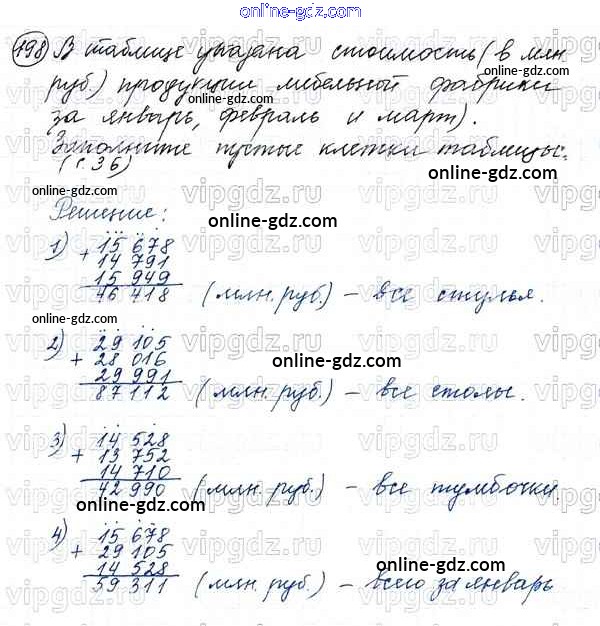 online-gdz.com
198) В таблице указана стоимость (в млн.
руб.) продукции мебельной фабрики
за январь, февраль и март).
Заполните пустые клетки таблицы.
(с. 36)
Решение:
1) + 15 678
14 791
15 949
46 418 (млн. руб.) – все стулья.
2) + 29 105
28 016
29 991
87 112 (млн. руб.) – все столы.
3) + 14 528
13 752
14 710
42 990 (млн. руб.) – все тумбочки.
4) + 15 678
29 105
14 528
59 311 (млн. руб.) – всего за январь
online-gdz.com
online-gdz.com
online-gdz.com
online-gdz.com
online-gdz.com
online-gdz.com
online-gdz.com
online-gdz.com
online-gdz.com
vipgdz.ru
vipgdz.ru
vipgdz.ru